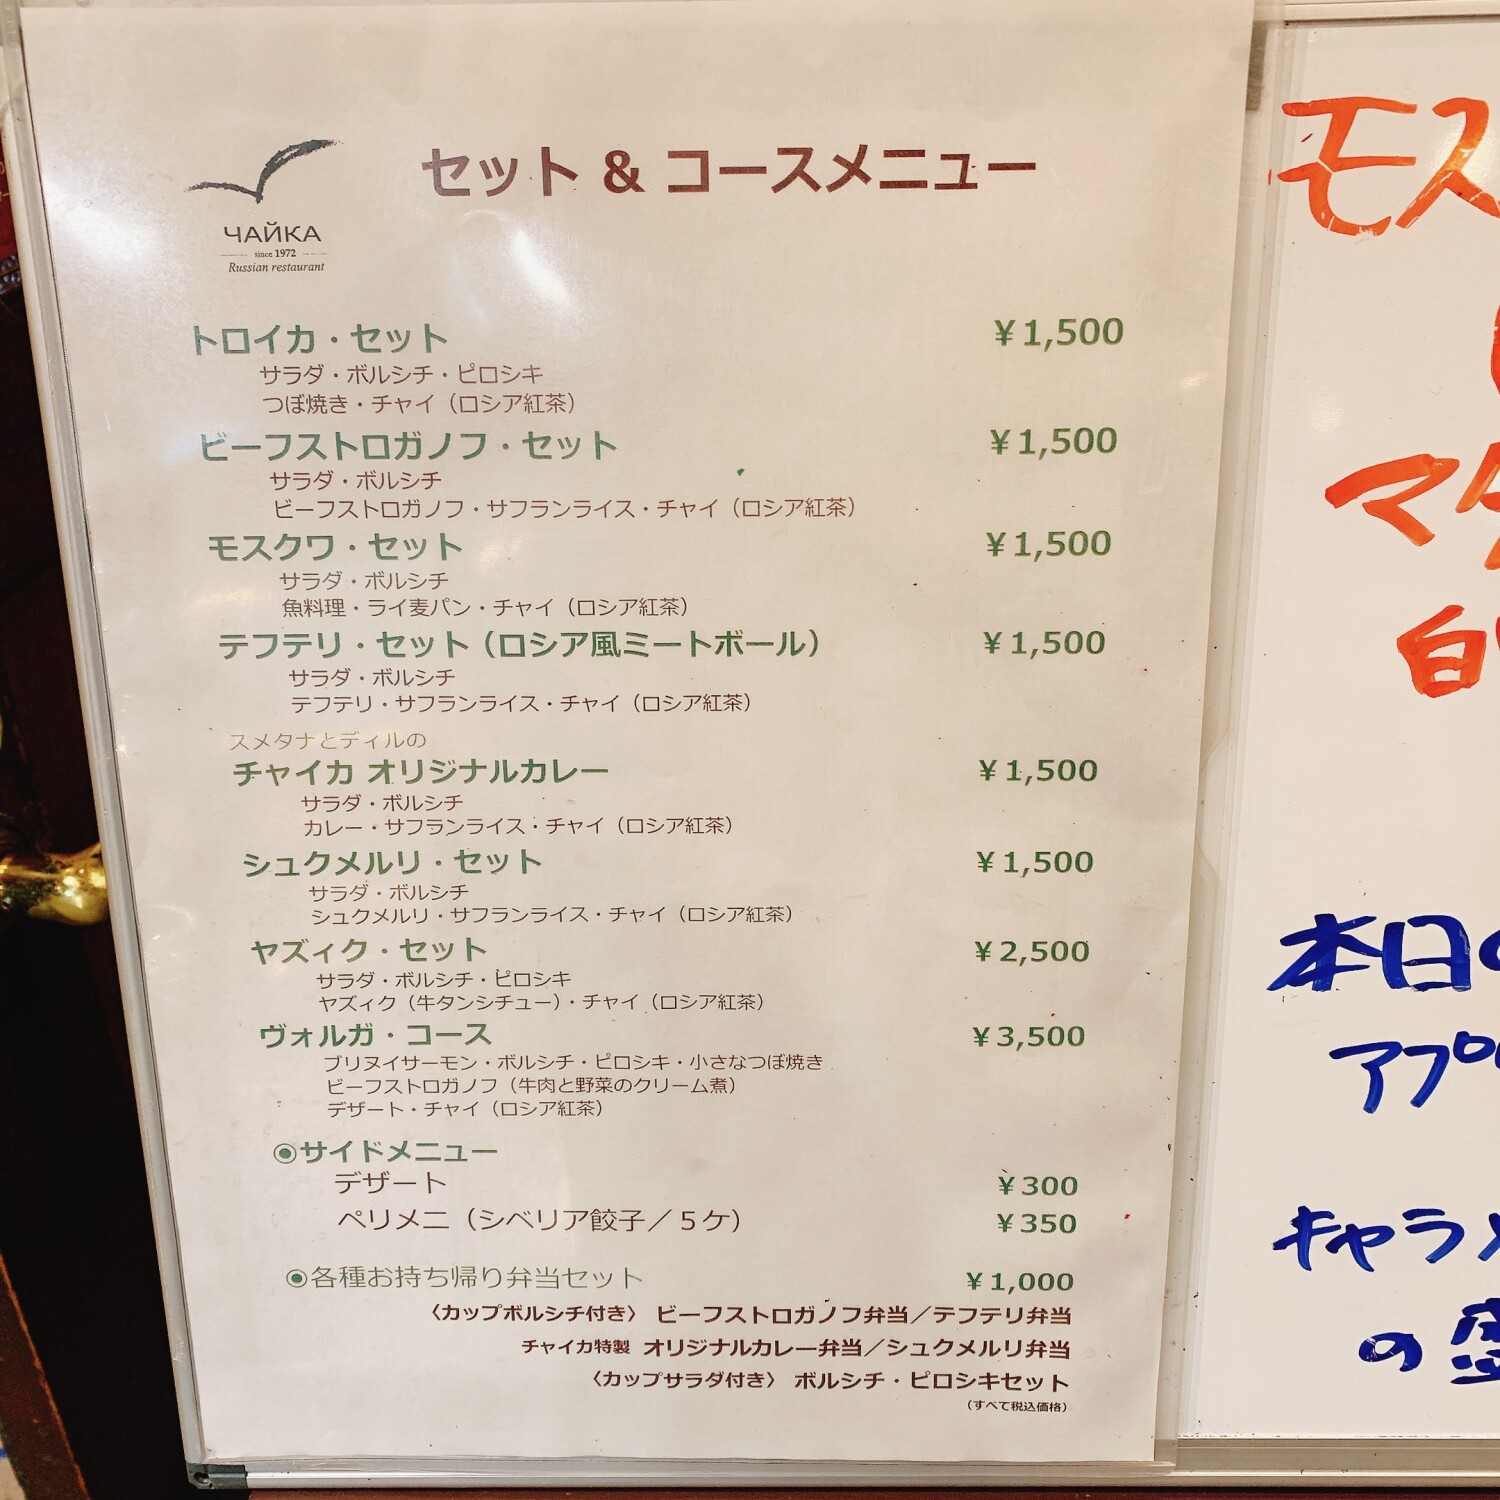 セット & コースメニュー
ЧАЙКА
since 1972
Russian restaurant
トロイカ・セット ¥1,500
サラダ・ボルシチ・ピロシキ
つぼ焼き・チャイ（ロシア紅茶）
ビーフストロガノフ・セット ¥1,500
サラダ・ボルシチ
ビーフストロガノフ・サフランライス・チャイ（ロシア紅茶）
モスクワ・セット ¥1,500
サラダ・ボルシチ
魚料理・ライ麦パン・チャイ（ロシア紅茶）
テフテリ・セット（ロシア風ミートボール） ¥1,500
サラダ・ボルシチ
テフテリ・サフランライス・チャイ（ロシア紅茶）
スメタナとディルの
チャイカ オリジナルカレー ¥1,500
サラダ・ボルシチ
カレー・サフランライス・チャイ（ロシア紅茶）
シュクメルリ・セット ¥1,500
サラダ・ボルシチ
シュクメルリ・サフランライス・チャイ（ロシア紅茶）
ヤズィク・セット ¥2,500
サラダ・ボルシチ・ピロシキ
ヤズィク（牛タンシチュー）・チャイ（ロシア紅茶）
ヴォルガ・コース ¥3,500
ブリヌイサーモン・ボルシチ・ピロシキ・小さなつぼ焼き
ビーフストロガノフ（牛肉と野菜のクリーム煮）
デザート・チャイ（ロシア紅茶）
◉サイドメニュー
デザート ¥300
ペリメニ（シベリア餃子／５ケ） ¥350
◉各種お持ち帰り弁当セット ¥1,000
〈カップボルシチ付き〉 ビーフストロガノフ弁当／テフテリ弁当
チャイカ特製 オリジナルカレー弁当／シュクメルリ弁当
〈カップサラダ付き〉 ボルシチ・ピロシキセット
（すべて税込価格）
モス
マ
白
本日の
アプ
キャラメ
の